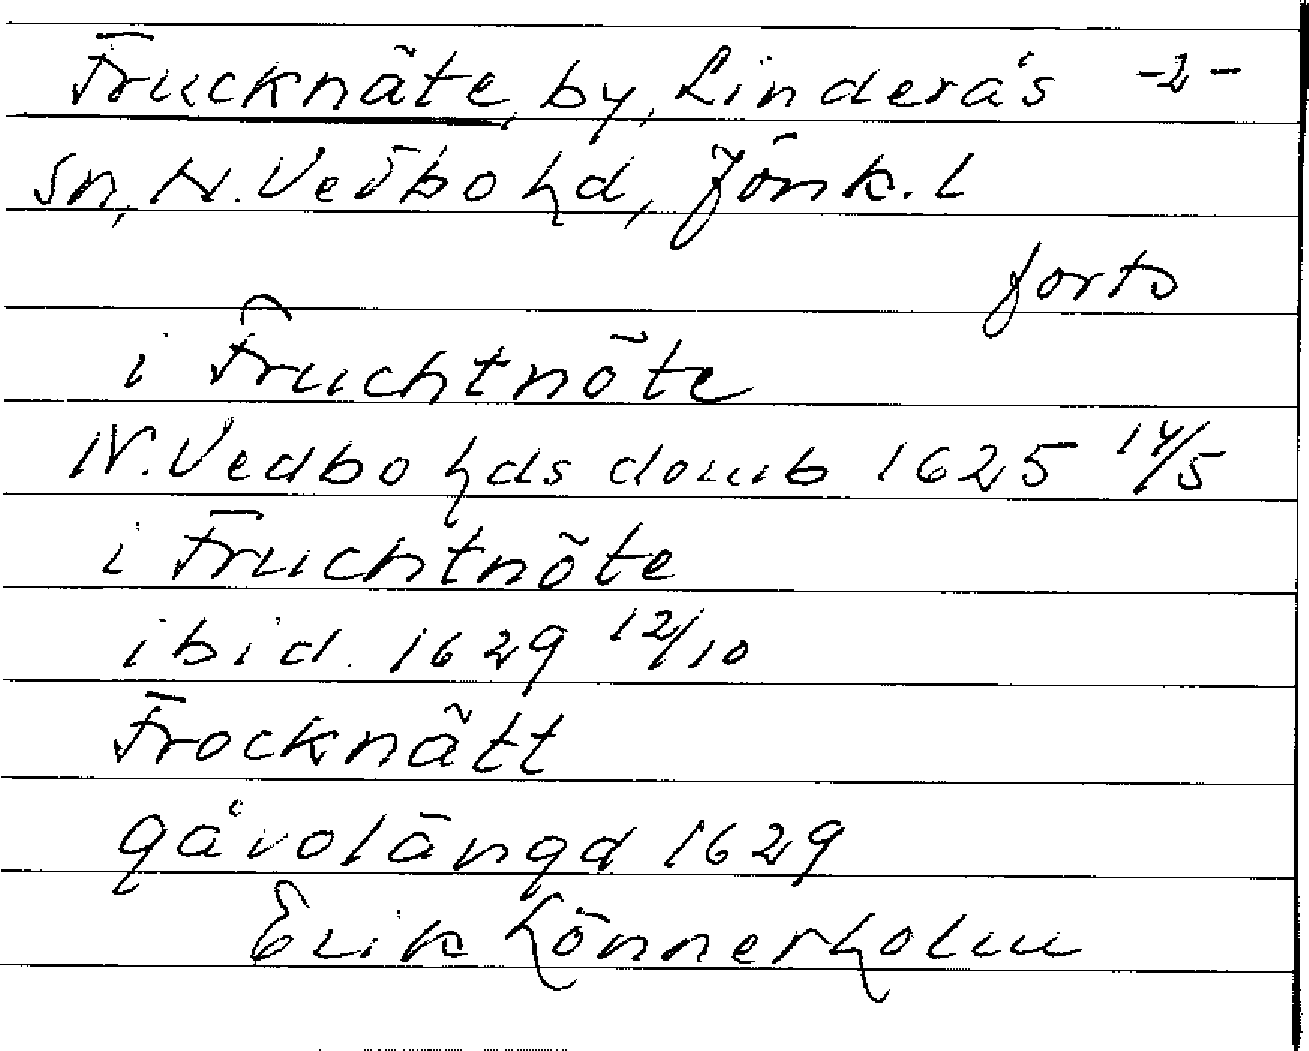 Frucknäte, by, Linderås -2-
sn, N. Vedbo hd, Jönk. L
forts
i Fruchtnöte
N. Vedbo hds domb 1625 14/5
i Fruchtnöte
ibid. 1629 12/10
Frocknätt
gåvolängd 1629
Erik Lönnerholm